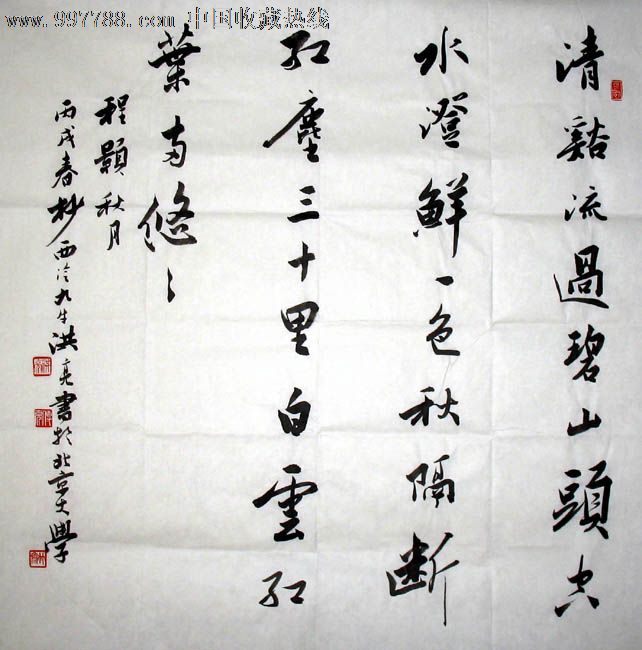 www.997788.com 中国收藏热线
清谿流過碧山頭空
水澄鮮一色秋隔斷
紅塵三十里白雲紅
葉兩悠〻
程顥秋月
丙戌春杪西泠九牛洪亮書於北京大學